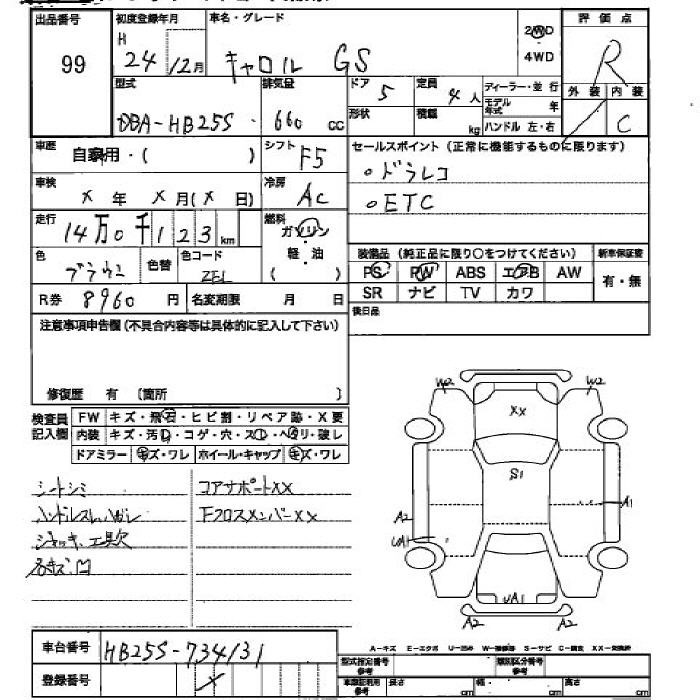 出品番号 99
初度登録年月 H 24年 12月
車名・グレード キャロル GS
2WD
4WD
評価点 R
外装 内装 C
型式 DBA-HB25S
排気量 660 cc
ドア 5
定員 4人
形状
積載 kg
ディーラー・並行
モデル年式 年
ハンドル 左・右
車歴 自家用・( )
シフト F5
セールスポイント (正常に機能するものに限ります)
。ドラレコ
。ETC
車検 X年 X月(X日)
冷房 AC
走行 14万0千123km
燃料 ガソリン・軽・油 ( )
色 ブラウン
色替
色コード ZEL
R券 8960円
名変期限 月 日
装備品 (純正品に限り○をつけてください)
新車保証書
PS PW ABS エアB AW
SR ナビ TV カワ
有・無
後日品
注意事項申告欄(不具合内容等は具体的に記入して下さい)
修復歴 有 〔箇所 〕
検査員記入欄
FW キズ・飛石・ヒビ割・リペア跡・X要
内装 キズ・汚れ・コゲ・穴・スレ・ヘタリ・破レ
ドアミラー キズ・ワレ ホイール・キャップ キズ・ワレ
シートシミ
コアサポートXX
FクロスメンバーXX
W2 W2
XX
S1
A1
A2
UA1
UA1
A2 A2
車台番号 HB25S-734131
登録番号
A-キズ E-エクボ U-凹み W-補修等 S-サビ C-腐食 XX-交換済
型式指定番号 参考
類別区分番号 参考
車庫証明用 参考 長さ cm 幅 cm 高さ cm